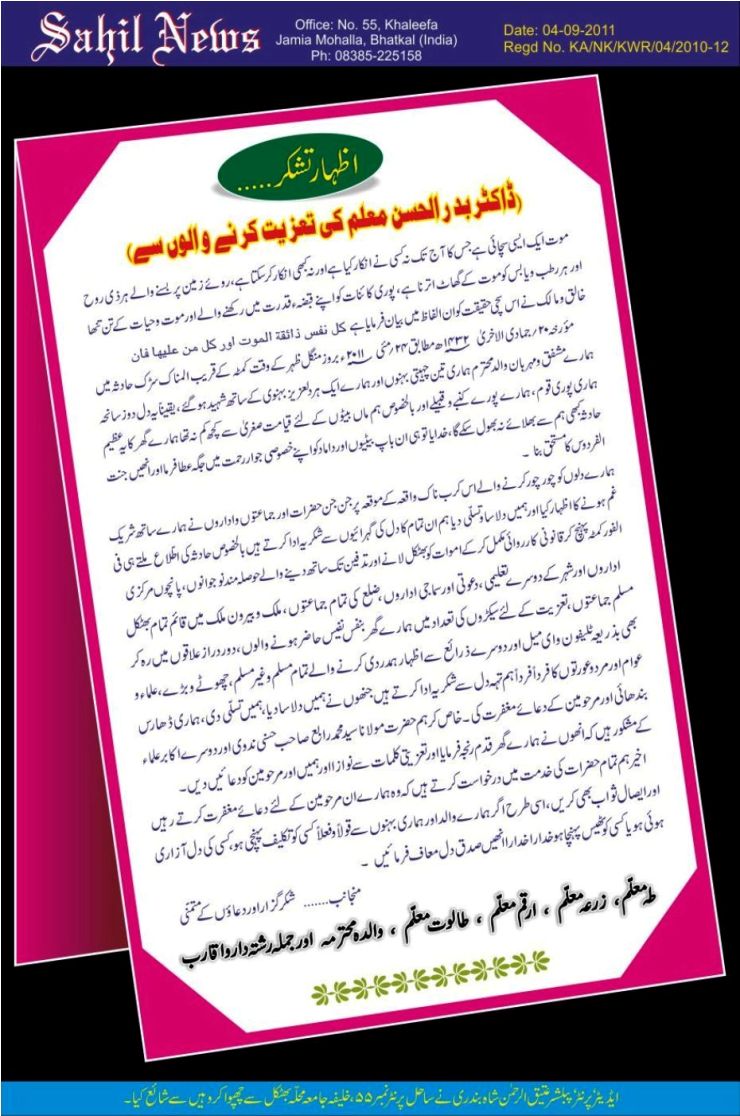 Sahil News
Office: No. 55, Khaleefa
Jamia Mohalla, Bhatkal (India)
Ph: 08385-225158
Date: 04-09-2011
Regd No. KA/NK/KWR/04/2010-12
اظہار تشکر.....
(ڈاکٹر بدرالحسن معلم کی تعزیت کرنے والوں سے)
موت ایک ایسی سچائی ہے جس کا آج تک نہ کسی نے انکار کیا ہے اور نہ کبھی انکار کر سکتا ہے، روئے زمین پر بسنے والے ہر ذی روح
اور ہر رطب و یابس کو موت کے گھاٹ اترنا ہے، پوری کائنات کو اپنے قبضہء قدرت میں رکھنے والے اور موت و حیات کے تن تنہا
خالق و مالک نے اس سچی حقیقت کو ان الفاظ میں بیان فرمایا ہے کل نفس ذائقة الموت اور کل من علیها فان
مؤرخہ ۲۰/ جمادی الاخریٰ ۱۴۳۲ھ مطابق ۲۴/ مئی ۲۰۱۱ء بروز منگل ظہر کے وقت کمٹہ کے قریب المناک سڑک حادثہ میں
ہمارے مشفق و مہربان والد محترم ہماری تین چہیتی بہنوں اور ہمارے ایک ہر دلعزیز بہنوی کے ساتھ شہید ہو گئے، یقیناً یہ دل دوز سانحہ
ہماری پوری قوم، ہمارے پورے کنبے و قبیلے اور بالخصوص ہم ماں بیٹوں کے لئے قیامت صغریٰ سے کچھ کم نہ تھا ہمارے گھر کا یہ عظیم
حادثہ کبھی ہم سے بھلائے نہ بھول سکے گا، خدایا تو ہی ان باپ بیٹیوں اور داماد کو اپنے خصوصی جوار رحمت میں جگہ عطا فرما اور انھیں جنت
الفردوس کا مستحق بنا ۔
ہمارے دلوں کو چور چور کرنے والے اس کرب ناک واقعہ کے موقعہ پر جن جن حضرات اور جماعتوں و اداروں نے ہمارے ساتھ شریک
غم ہونے کا اظہار کیا اور ہمیں دلاسا و تسلی دیا ہم ان تمام کا دل کی گہرائیوں سے شکریہ ادا کرتے ہیں بالخصوص حادثہ کی اطلاع ملتے ہی فی
الفور کمٹہ پہنچ کر قانونی کارروائی مکمل کر کے اموات کو بھٹکل لانے اور تدفین تک ساتھ دینے والے حوصلہ مند نوجوانوں، پانچوں مرکزی
اداروں اور شہر کے دوسرے تعلیمی، دعوتی اور سماجی اداروں، ضلع کی تمام جماعتوں، ملک و بیرون ملک میں قائم تمام بھٹکل
مسلم جماعتوں، تعزیت کے لئے سیکڑوں کی تعداد میں ہمارے گھر بنفس نفیس حاضر ہونے والوں، دور دراز علاقوں میں رہ کر
بھی بذریعہ ٹلیفون وای میل اور دوسرے ذرائع سے اظہار ہمدردی کرنے والے تمام مسلم و غیر مسلم، چھوٹے و بڑے، علماء و
عوام اور مرد و عورتوں کا فرداً فرداً ہم تہہ دل سے شکریہ ادا کرتے ہیں جنھوں نے ہمیں دلاسا دیا، ہمیں تسلی دی، ہماری ڈھارس
بندھائی اور مرحومین کے دعائے مغفرت کی۔ خاص کر ہم حضرت مولانا سید محمد رابع صاحب حسنی ندوی اور دوسرے اکابر علماء
کے مشکور ہیں کہ انھوں نے ہمارے گھر قدم رنجہ فرمایا اور تعزیتی کلمات سے نوازا اور ہمیں اور مرحومین کو دعائیں دیں۔
اخیر ہم تمام حضرات کی خدمت میں درخواست کرتے ہیں کہ وہ ہمارے ان مرحومین کے لئے دعائے مغفرت کرتے رہیں
اور ایصال ثواب بھی کریں، اسی طرح اگر ہمارے والد اور ہماری بہنوں سے قولاً و فعلاً کسی کو تکلیف پہنچی ہو، کسی کی دل آزاری
ہوئی ہو یا کسی کو ٹھیس پہنچا ہو خدارا خدارا انھیں صدق دل معاف فرمائیں ۔
منجانب....... شکر گزار اور دعاؤں کے متمنی
طہ معلّم، زرعہ معلّم ، ارقم معلّم ، طالوت معلّم ، والدہ محترمہ اور جملہ رشتہ دار و اقارب
ایڈیٹر پرنٹر، پبلشر عتیق الرحمٰن شاہ بندری نے ساحل پرنٹر نمبر ۵۵، خلیفہ جامعہ محلّہ بھٹکل سے چھپوا کر وہیں سے شائع کیا۔